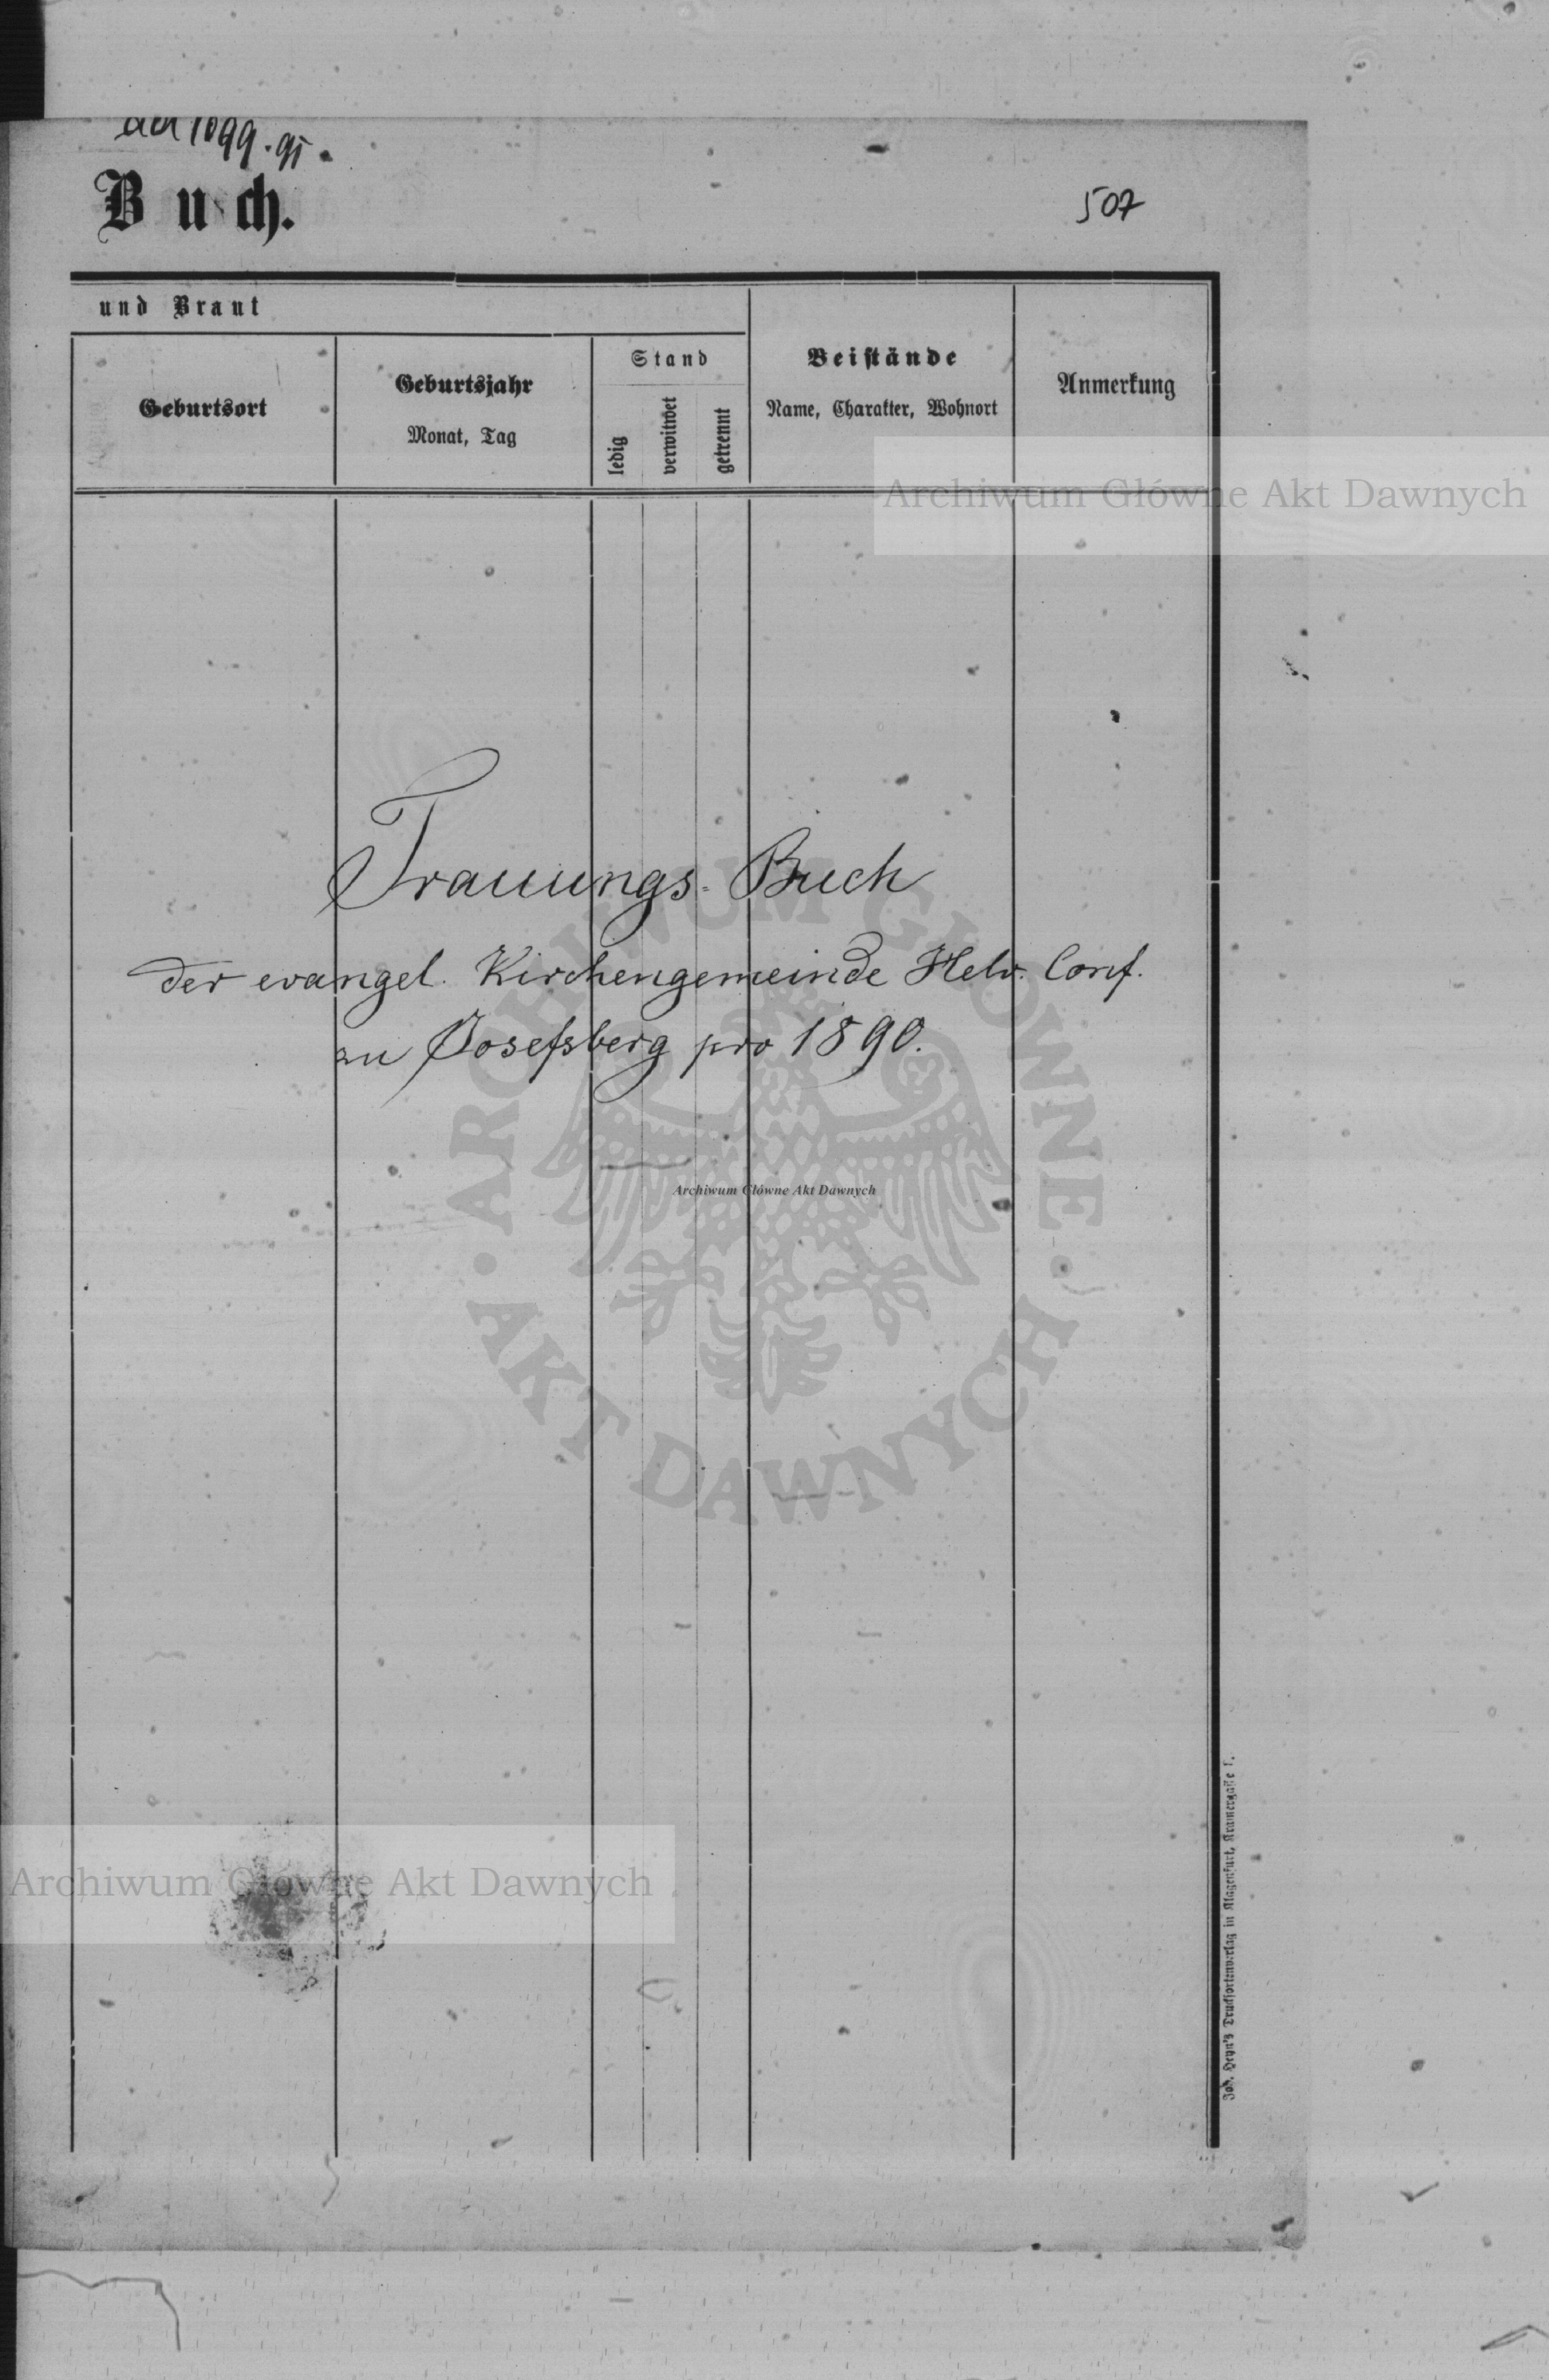 1099.91.
Buch.
507
und Braut
Geburtsort
Geburtsjahr
Monat, Tag
Stand
ledig
verwitwet
getrennt
Beistände
Name, Charakter, Wohnort
Anmerkung
Archiwum Główne Akt Dawnych
Trauungs-Buch
der evangel. Kirchengemeinde Helv. Conf.
zu Josefsberg pro 1890.
ARCHIWUM GŁÓWNE
Archiwum Główne Akt Dawnych
AKT DAWNYCH
Archiwum Główne Akt Dawnych
Joh. Heyn's Drucksortenverlag in Klagenfurt, Kramergasse